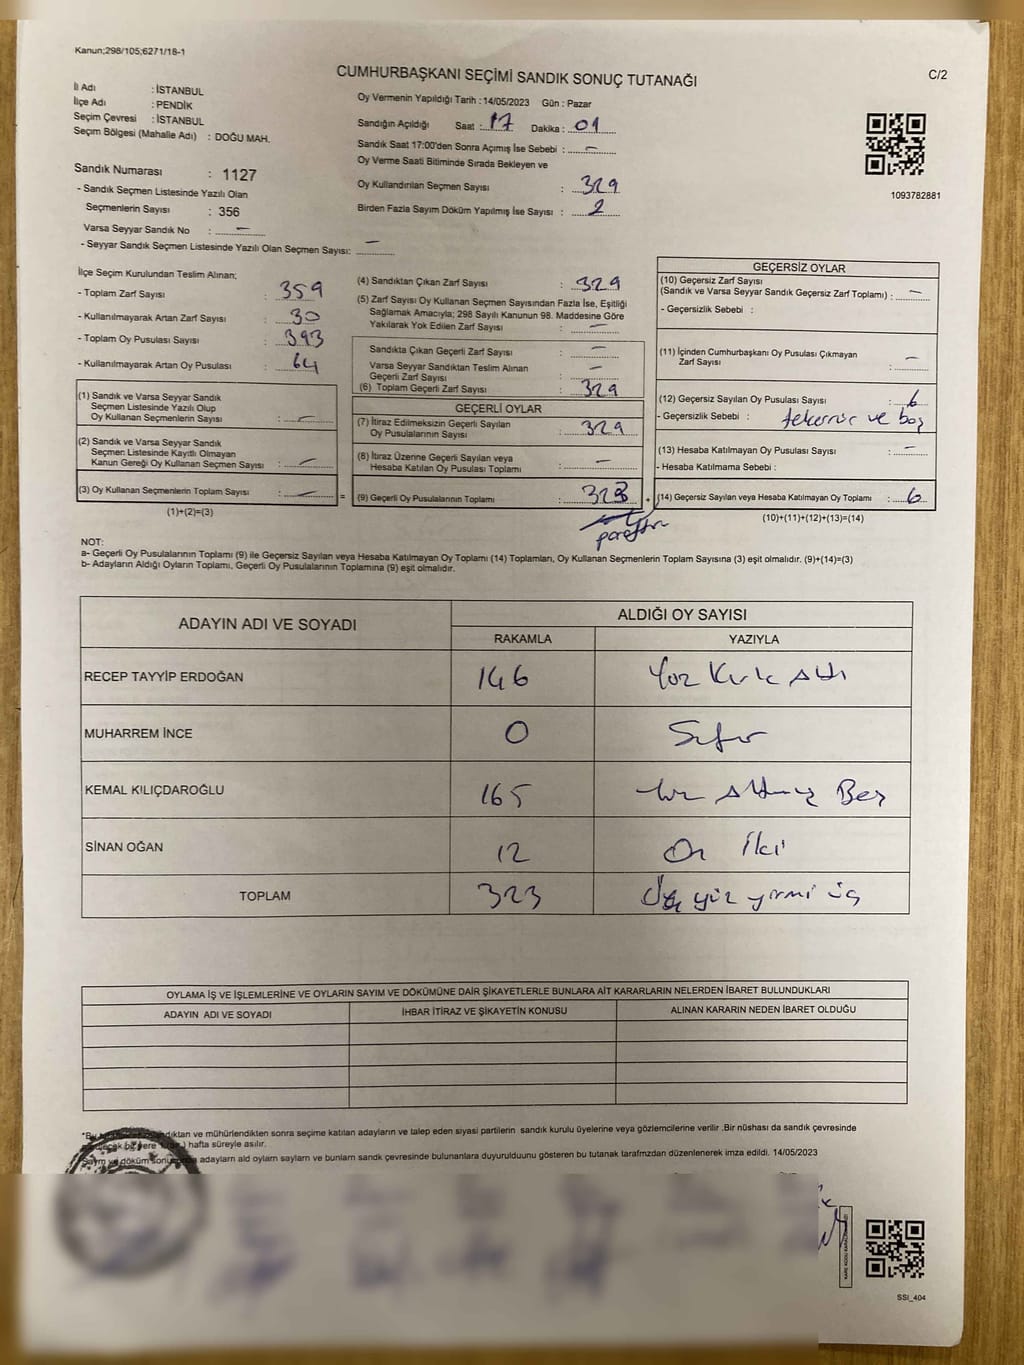 Kanun;298/105;6271/18-1
CUMHURBAŞKANI SEÇİMİ SANDIK SONUÇ TUTANAĞI
C/2
İl Adı : İSTANBUL
İlçe Adı : PENDİK
Seçim Çevresi : İSTANBUL
Seçim Bölgesi (Mahalle Adı) : DOĞU MAH.
Oy Vermenin Yapıldığı Tarih : 14/05/2023 Gün : Pazar
Sandığın Açıldığı Saat : 17 Dakika : 01
Sandık Saat 17:00'den Sonra Açımış İse Sebebi : -
Oy Verme Saati Bitiminde Sırada Bekleyen ve
Oy Kullandırılan Seçmen Sayısı : 329
Birden Fazla Sayım Döküm Yapılmış İse Sayısı : 2
1093782881
Sandık Numarası : 1127
- Sandık Seçmen Listesinde Yazılı Olan
Seçmenlerin Sayısı : 356
Varsa Seyyar Sandık No : -
- Seyyar Sandık Seçmen Listesinde Yazılı Olan Seçmen Sayısı: -
İlçe Seçim Kurulundan Teslim Alınan;
- Toplam Zarf Sayısı : 359
- Kullanılmayarak Artan Zarf Sayısı : 30
- Toplam Oy Pusulası Sayısı : 393
- Kullanılmayarak Artan Oy Pusulası : 64
(1) Sandık ve Varsa Seyyar Sandık
Seçmen Listesinde Yazılı Olup
Oy Kullanan Seçmenlerin Sayısı : -
(2) Sandık ve Varsa Seyyar Sandık
Seçmen Listesinde Kayıtlı Olmayan
Kanun Gereği Oy Kullanan Seçmen Sayısı : -
(3) Oy Kullanan Seçmenlerin Toplam Sayısı : - =
(1)+(2)=(3)
(4) Sandıktan Çıkan Zarf Sayısı : 329
(5) Zarf Sayısı Oy Kullanan Seçmen Sayısından Fazla İse, Eşitliği
Sağlamak Amacıyla; 298 Sayılı Kanunun 98. Maddesine Göre
Yakılarak Yok Edilen Zarf Sayısı : -
Sandıkta Çıkan Geçerli Zarf Sayısı : -
Varsa Seyyar Sandıktan Teslim Alınan
Geçerli Zarf Sayısı : -
(6) Toplam Geçerli Zarf Sayısı : 329
GEÇERLİ OYLAR
(7) İtiraz Edilmeksizin Geçerli Sayılan
Oy Pusulalarının Sayısı : 329
(8) İtiraz Üzerine Geçerli Sayılan veya
Hesaba Katılan Oy Pusulası Toplamı : -
(9) Geçerli Oy Pusulalarının Toplamı : 323 +
GEÇERSİZ OYLAR
(10) Geçersiz Zarf Sayısı
(Sandık ve Varsa Seyyar Sandık Geçersiz Zarf Toplamı) : -
- Geçersizlik Sebebi :
(11) İçinden Cumhurbaşkanı Oy Pusulası Çıkmayan
Zarf Sayısı : -
(12) Geçersiz Sayılan Oy Pusulası Sayısı : 6
- Geçersizlik Sebebi : tekerrür ve boş
(13) Hesaba Katılmayan Oy Pusulası Sayısı : -
- Hesaba Katılmama Sebebi :
(14) Geçersiz Sayılan veya Hesaba Katılmayan Oy Toplamı : 6
(10)+(11)+(12)+(13)=(14)
NOT:
a- Geçerli Oy Pusulalarının Toplamı (9) ile Geçersiz Sayılan veya Hesaba Katılmayan Oy Toplamı (14) Toplamları, Oy Kullanan Seçmenlerin Toplam Sayısına (3) eşit olmalıdır. (9)+(14)=(3)
b- Adayların Aldığı Oyların Toplamı, Geçerli Oy Pusulalarının Toplamına (9) eşit olmalıdır.
ADAYIN ADI VE SOYADI
ALDIĞI OY SAYISI
RAKAMLA YAZIYLA
RECEP TAYYİP ERDOĞAN 146 Yüz Kırk Altı
MUHARREM İNCE 0 Sıfır
KEMAL KILIÇDAROĞLU 165 Yüz Altmış Beş
SİNAN OĞAN 12 On İki
TOPLAM 323 Üç yüz yirmi üç
OYLAMA İŞ VE İŞLEMLERİNE VE OYLARIN SAYIM VE DÖKÜMÜNE DAİR ŞİKAYETLERLE BUNLARA AİT KARARLARIN NELERDEN İBARET BULUNDUKLARI
ADAYIN ADI VE SOYADI İHBAR İTİRAZ VE ŞİKAYETİN KONUSU ALINAN KARARIN NEDEN İBARET OLDUĞU
ve mühürlendikten sonra seçime katılan adayların ve talep eden siyasi partilerin sandık kurulu üyelerine veya gözlemcilerine verilir .Bir nüshası da sandık çevresinde
hafta süreyle asılır.
Sayım ve döküm adayların ald oylarn saylarn ve bunlarn sandk çevresinde bulunanlara duyurulduunu gösteren bu tutanak tarafmzdan düzenlenerek imza edildi. 14/05/2023
SSI_404